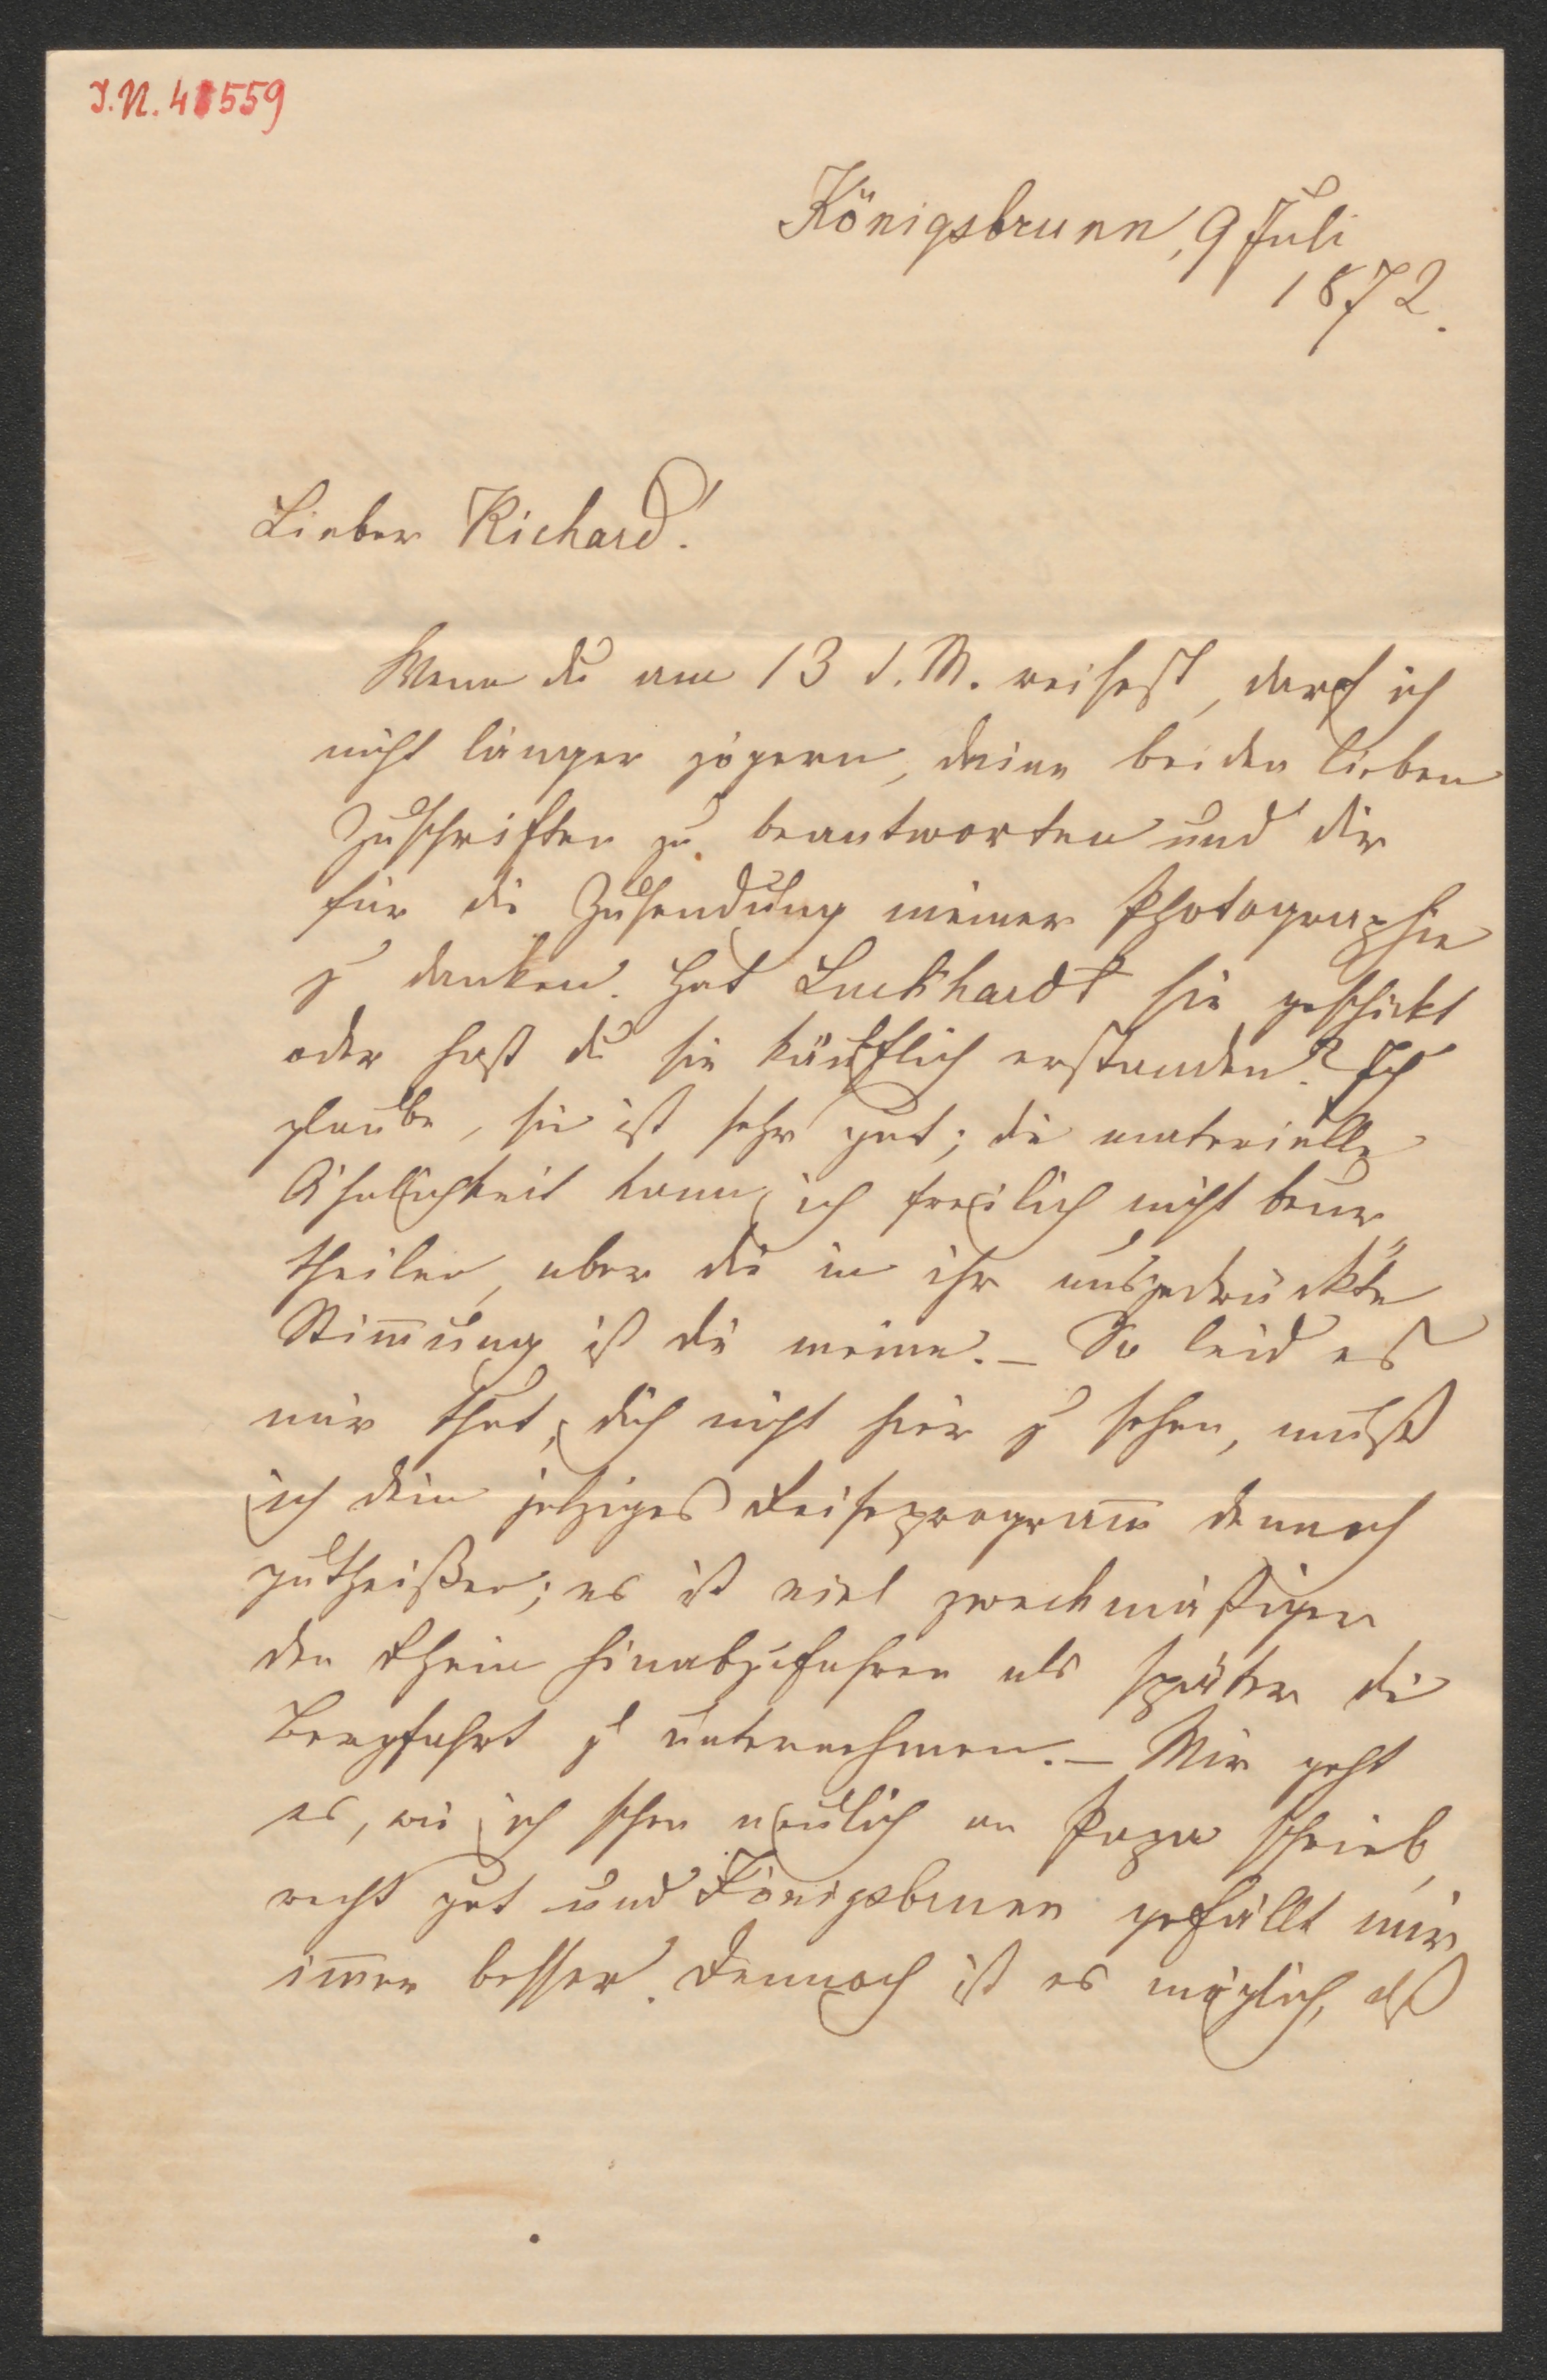 I.N. 48559
Königsbrunn, 9 Juli
1872.
Lieber Richard!
Wenn du am 13 d. M. reisest, darf ich
nicht länger zögern, deine beiden lieben
Zuschriften zu beantworten und dir
für die Zusendung meiner Photographie
zu danken. Hat Luckhardt sie geschickt
oder hast du sie käuflich erstanden? Ich
glaube, sie ist sehr gut; die materielle
Ähnlichkeit kann ich freilich nicht beur
theilen, aber die in ihr ausgedrückte
Stim̅ung ist die meine. – So leid es
mir thut, dich nicht hier zu sehen, muß
ich dein jetziges Reiseprogram̅ dennoch
gutheißen; es ist viel zweckmäßiger
den Rhein hinabzufahren als später die
Bergfahrt zu unternehmen. – Mir geht
es, wie ich schon neulich an Papa schrieb,
recht gut und Königsbrunn gefällt mir
im̅er besser. Dennoch ist es möglich, dß